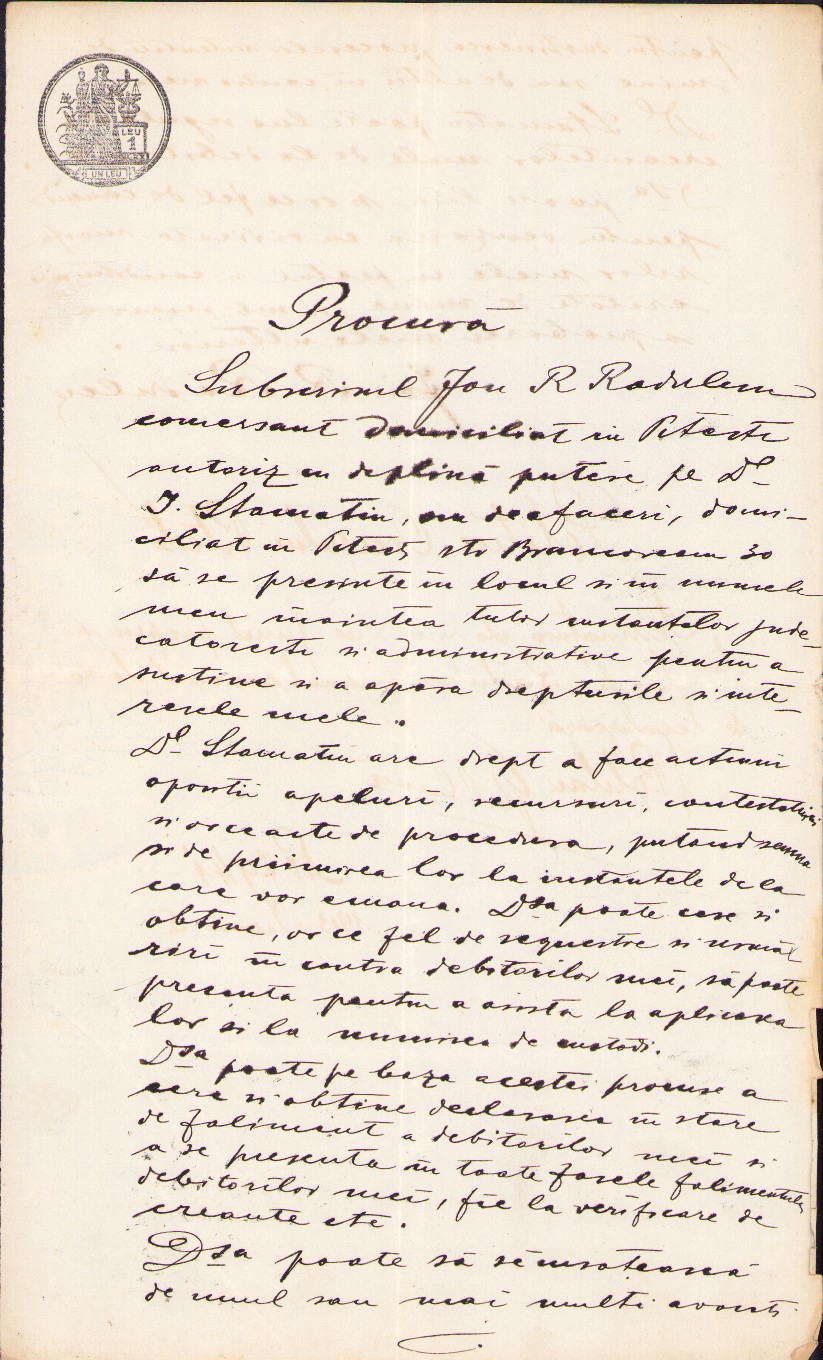 LEU
1
UN LEU
Procură
Subscrisul Jon R Radulescu
comersant domiciliat in Pitesti
autoriz cu deplină putere pe Dl
I. Stamatin, om deafaceri, domi-
ciliat in Pitesti str Brancoveanu 30
să se presinte in locul si in numele
meu inaintea tutor instantelor jude-
catoresti si administrative pentru a
sustine si a apăra drepturile si inte-
resele mele.
Dl Stamatin are drept a face actiuni
opositii apeluri, recursuri, contestatiuni
si orce acte de procedura, putand semna
si de priimirea lor la instantele de la
care vor emana. Dsa poate cere si
obtine, or ce fel de sequestre si urmă-
riri in contra debitorilor mei, să poate
presenta pentru a asista la aplicarea
lor si la numirea de custodi.
Dsa poate pe baza acestei procure a
cere si obtine declararea in stare
de faliment a debitorilor mei si
a se presenta in toate fasele falimentului
debitorilor mei, fie la verificare de
creante etc.
Dsa poate să se insotească
de unul sau mai multi avocati